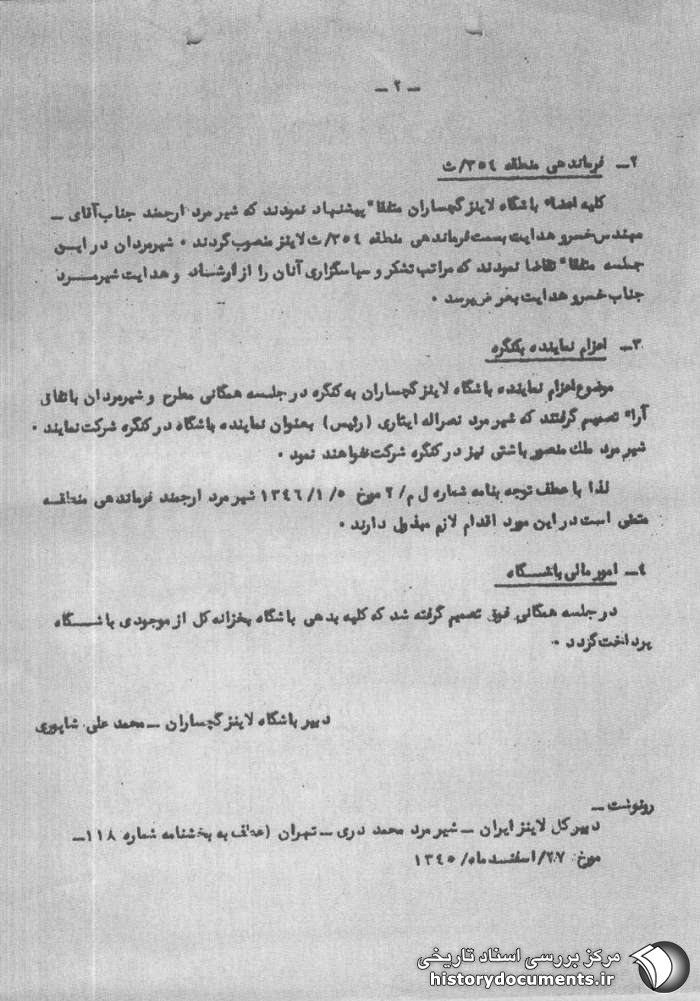 ـ ۲ ـ
۲ـ فرماندهی منطقه ۳۵٤/ث
کلیه اعضاء باشگاه لاینز گچساران متفقاً پیشنهاد نمودند که شیر مرد ارجمند جناب آقای ـ
مهندس خسرو هدایت بسمت فرماندهی منطقه ۳۵٤/ث لاینز منصوب گردند ۰ شیرمردان در ایـن
جلسه متفقاً تقاضا نمودند که مراتب تشکر و سپاسگزاری آنان را از ارشاد و هدایت شیرمـرد
جناب خسرو هدایت بعرض برسد ۰
۳ـ اعزام نماینده بکنگره
موضوع اعزام نماینده باشگاه لاینز گچساران به کنگره در جلسه همگانی مطرح و شیرمردان باتفاق
آراء تصمیم گرفتند که شیر مرد نصراله ایثاری (رئیس) بعنوان نماینده باشگاه در کنگره شرکت نمایند ۰
شیر مرد ملک منصور باشتی نیز در کنگره شرکت خواهند نمود ۰
لذا با عطف توجه بنامه شماره ل م/۲ مورخ ۱۳٤٦/۱/۵ شیر مرد ارجمند فرماندهی منطقـه
متمنی است در این مورد اقدام لازم مبذول دارند ۰
٤ـ امور مالی باشـگاه
در جلسه همگانی فوق تصمیم گرفته شد که کلیه بدهی باشگاه بخزانه کل از موجودی باشـگاه
پرداخت گردد ۰
دبیر باشگاه لاینز گچساران ـ محمد علی شاپوری
رونوشت ـ
دبیر کل لاینز ایران ـ شیر مرد محمد دری ـ تهران (عطف به بخشنامه شماره ۱۱۸ـ
مورخ ۲۷/اسفند ماه/۱۳٤۵
مرکز بررسی اسناد تاریخی
historydocuments.ir